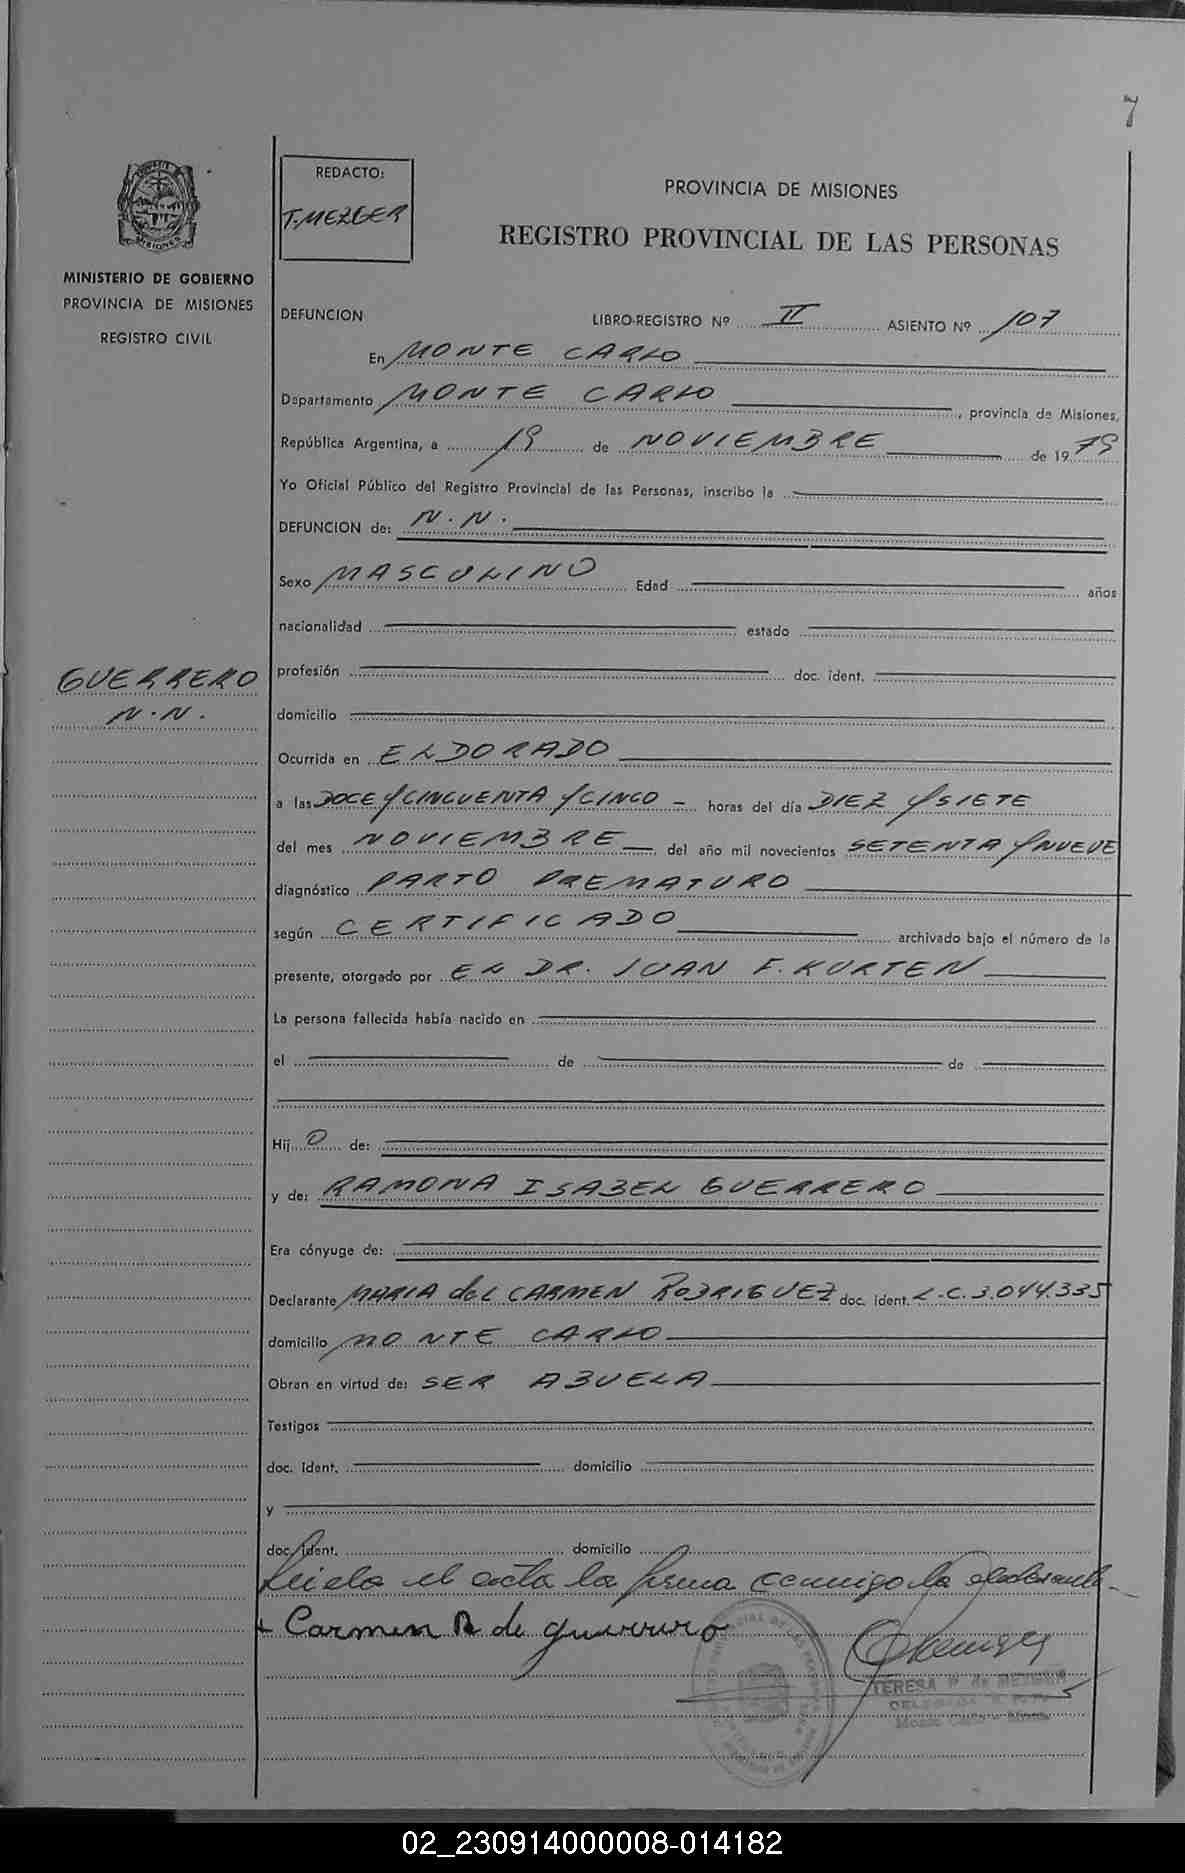 7
REDACTO:
T. MEZGER
PROVINCIA DE MISIONES
REGISTRO PROVINCIAL DE LAS PERSONAS
MISIONES
MINISTERIO DE GOBIERNO
PROVINCIA DE MISIONES
REGISTRO CIVIL
DEFUNCION LIBRO-REGISTRO Nº II ASIENTO Nº 107
En MONTE CARLO
Departamento MONTE CARLO, provincia de Misiones,
República Argentina, a 19 de NOVIEMBRE de 1979
Yo Oficial Público del Registro Provincial de las Personas, inscribo la
DEFUNCION de: N. N.
Sexo MASCULINO Edad años
nacionalidad estado
GUERRERO
N. N.
profesión doc. ident.
domicilio
Ocurrida en ELDORADO
a las DOCE Y CINCUENTA Y CINCO - horas del día DIEZ Y SIETE
del mes NOVIEMBRE del año mil novecientos SETENTA Y NUEVE
diagnóstico PARTO PREMATURO
según CERTIFICADO archivado bajo el número de la
presente, otorgado por EL DR. JUAN F. KURTEN
La persona fallecida había nacido en
el de de
Hij O de:
y de: RAMONA ISABEL GUERRERO
Era cónyuge de:
Declarante MARIA del CARMEN RODRIGUEZ doc. ident. L.C. 3.044.335
domicilio MONTE CARLO
Obran en virtud de: SER ABUELA
Testigos
doc. ident. domicilio
y
doc. ident. domicilio
Leida el acta la firma conmigo la declarante
Carmen R de guerrero
TERESA P. de MEZGER
02_230914000008-014182